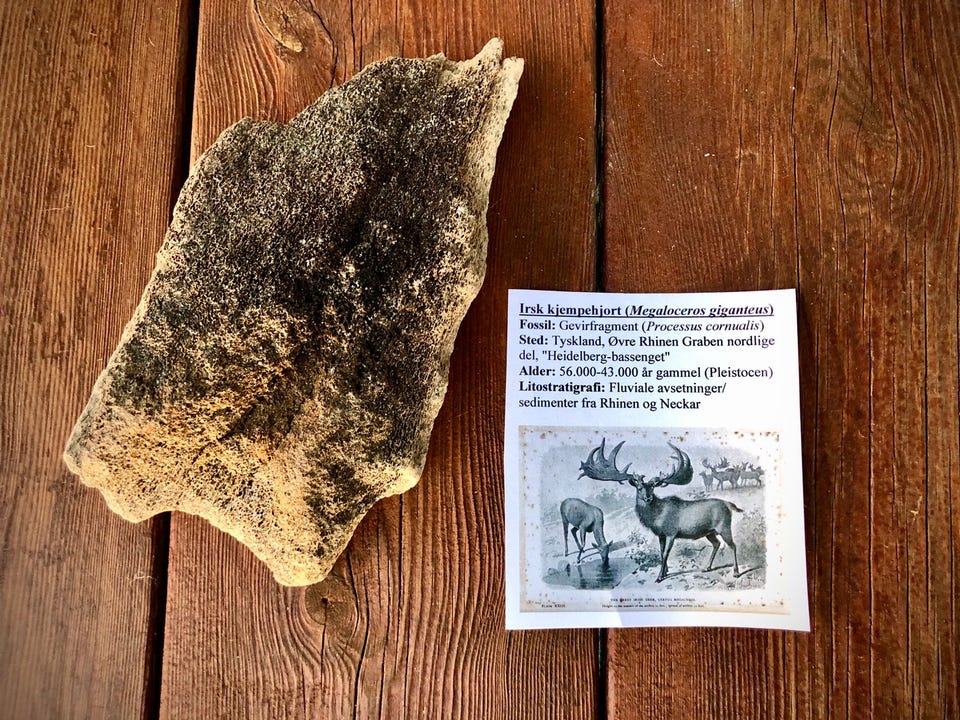 Irsk kjempehjort (Megaloceros giganteus)
Fossil: Gevirfragment (Processus cornualis)
Sted: Tyskland, Øvre Rhinen Graben nordlige
del, "Heidelberg-bassenget"
Alder: 56.000-43.000 år gammel (Pleistocen)
Litostratigrafi: Fluviale avsetninger/
sedimenter fra Rhinen og Neckar
THE GREAT IRISH DEER, CERVUS MEGACEROS.
PLATE XXIII.